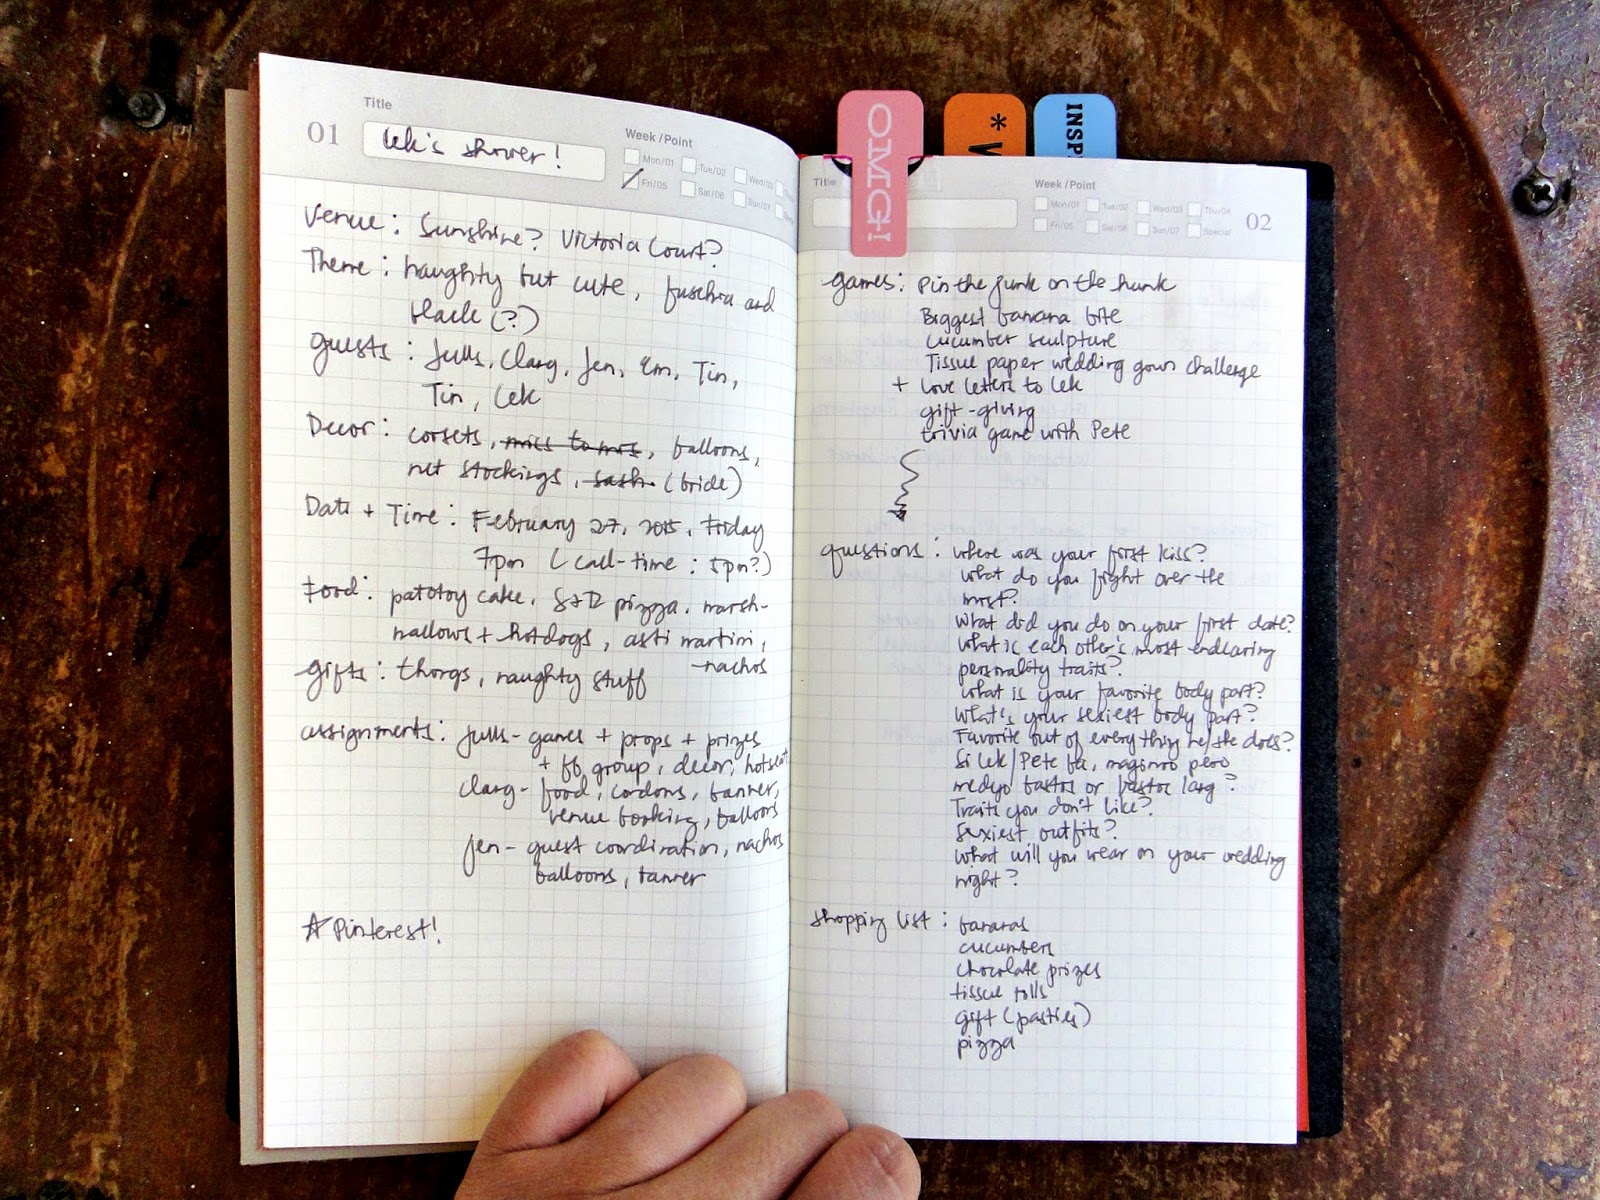 Title
01
Lek's shower!
Week/Point
Mon/01 Tue/02 Wed/03
Fri/05 Sat/06 Sun/07
Venue: Sunshine? Victoria Court?
Theme: naughty but cute, fuschia and
black (?)
guests: Julls, Clarg, Jen, Em, Tin,
Tin, Lek
Decor: corsets, miss to mrs, balloons,
net stockings, sash (bride)
Date + Time: February 27, 2015, Friday
7pm (call-time: 5pm?)
Food: patotoy cake, S&R pizza, marsh-
mallows + hotdogs, asti martini,
-nachos
gifts: thongs, naughty stuff
assignments: Julls- games + props + prizes
+ fb group, decor, hotseat
Clarg- food, condoms, banner,
venue booking, balloons
Jen- guest coordination, nachos
balloons, banner
*Pinterest!
OMG!
* V
INSP
Title
Week/Point
Mon/01 Tue/02 Wed/03 Thu/04
Fri/05 Sat/06 Sun/07 Special
02
games: Pin the junk on the hunk
Biggest banana bite
cucumber sculpture
Tissue paper wedding gown challenge
+ love letters to Lek
gift-giving
trivia game with Pete
questions: where was your first kiss?
what do you fight over the
most?
What did you do on your first date?
What is each other's most endearing
personality traits?
What is your favorite body part?
What's your sexiest body part?
Favorite out of everything he/she does?
Si Lek/Pete ba, maginoo pero
medyo bastos or bastos lang?
Traits you don't like?
Sexiest outfits?
What will you wear on your wedding
night?
shopping list: bananas
cucumbers
chocolate prizes
tissue rolls
gift (pasties)
pizza